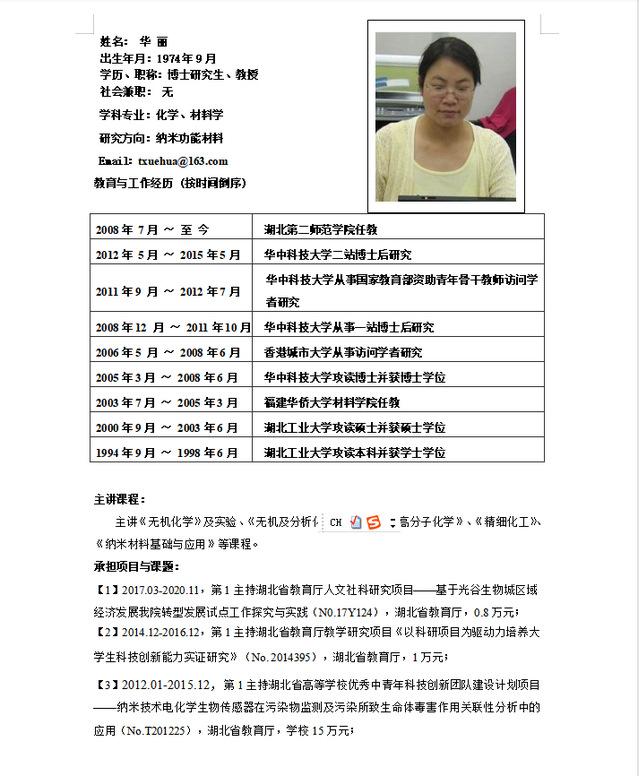 姓名： 华 丽
出生年月：1974年9月
学历、职称：博士研究生、教授
社会兼职： 无
学科专业：化学、材料学
研究方向：纳米功能材料
Email: txuehua@163.com
教育与工作经历（按时间倒序）
2008年 7月 ～ 至 今 湖北第二师范学院任教
2012年 5月 ～ 2015年5月 华中科技大学二站博士后研究
2011年9 月 ～ 2012年7月 华中科技大学从事国家教育部资助青年骨干教师访问学
者研究
2008年12 月 ～ 2011年10月 华中科技大学从事一站博士后研究
2006年5 月 ～ 2008年6月 香港城市大学从事访问学者研究
2005年3月 ～ 2008年6月 华中科技大学攻读博士并获博士学位
2003年7月 ～ 2005年3月 福建华侨大学材料学院任教
2000年9月 ～ 2003年6月 湖北工业大学攻读硕士并获硕士学位
1994年9月 ～ 1998年6月 湖北工业大学攻读本科并获学士学位
主讲课程：
主讲《无机化学》及实验、《无机及分析 CH 高分子化学》、《精细化工》、
《纳米材料基础与应用》等课程。
承担项目与课题：
【1】2017.03-2020.11，第1主持湖北省教育厅人文社科研究项目——基于光谷生物城区域
经济发展我院转型发展试点工作探究与实践（N0.17Y124），湖北省教育厅，0.8万元；
【2】2014.12-2016.12，第1主持湖北省教育厅教学研究项目《以科研项目为驱动力培养大
学生科技创新能力实证研究》（No.2014395），湖北省教育厅，1万元；
【3】2012.01-2015.12，第1主持湖北省高等学校优秀中青年科技创新团队建设计划项目
——纳米技术电化学生物传感器在污染物监测及污染所致生命体毒害作用关联性分析中的
应用（No.T201225），湖北省教育厅，学校15万元；